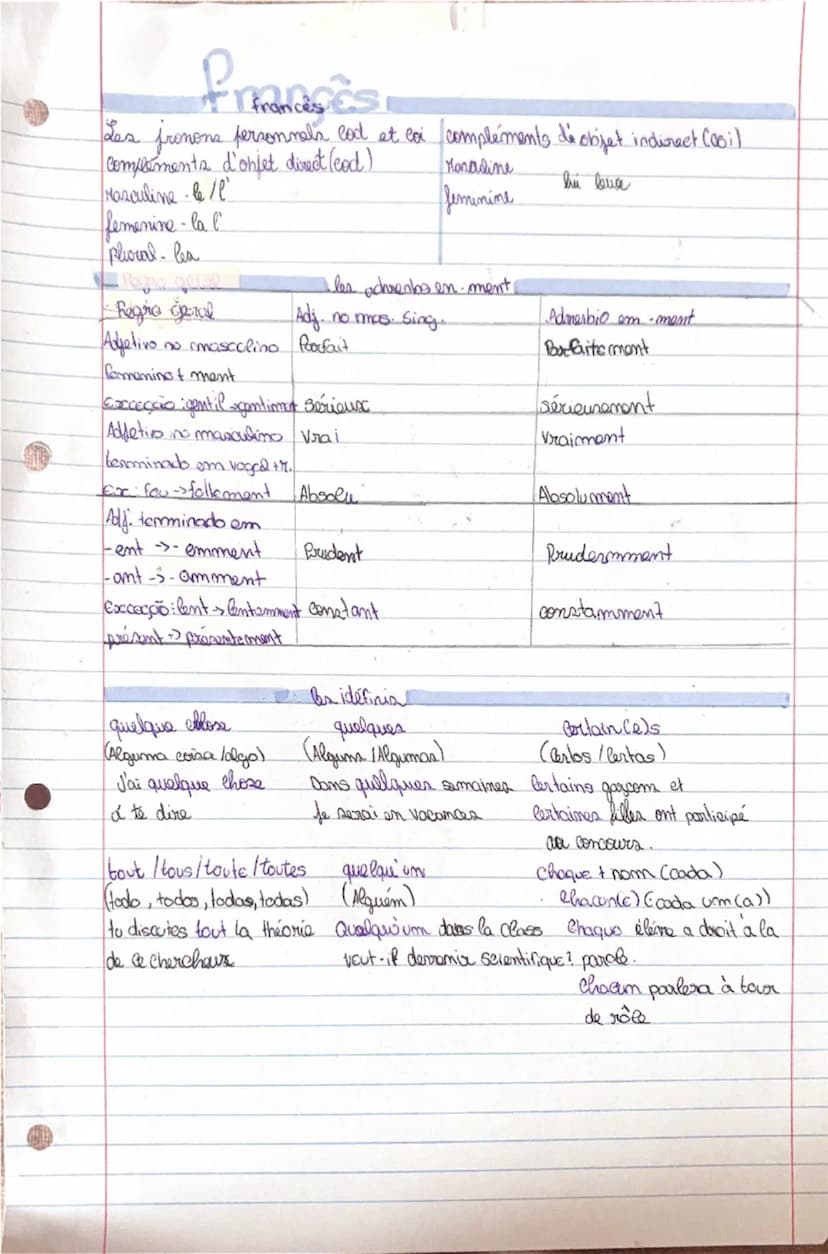 Francês
francês
Les pronons personnals cod et coi
compléments d'objet direct (cod)
Masculine - le / l'
femenine - la l'
plural - les
compléments d'objet indirect (coi)
Masculine
femenine
lui leur
Regra geral
les adverbes en -ment
Regra geral
Adj. no mas. sing.
Advérbio em -ment
Adjetivo no masculino
Parfait
Parfaitement
femenino + ment
Excecção: gentil → gentiment
Sérieux
sérieusement
Adjetivo no masculino
Vrai
Vraiment
terminado em vogal + r.
Ex: fou -> follement
Absolu
Absolument
Adj. terminado em
-ent -> -emment
Prudent
Prudemment
-ant -> -amment
Excecção: lent -> lentamment
constant
constamment
présent -> présentement
les idéfinis
quelque chose
(Alguma coisa / algo)
J'ai quelque chose
à te dire
quelques
(Alguns / Algumas)
Dans quelques semaines
Je serai en vacances
Certain(e)s
(Certos / Certas)
Certains garçons et
certaines filles ont participé
au concours.
tout / tous / toute / toutes
(todo, todos, todas, todas)
tu discutes tout la théorie
de ce chercheur
quelqu'un
(Alguém)
Quelqu'um dans la class
veut-il devenir scientifique?
chaque + nom (cada)
chacun(e) (cada um(a))
Chaque élève a droit à la
parole.
Chacun parlera à tour
de rôle